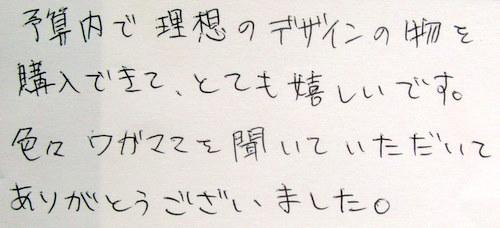 予算内で理想のデザインの物を
購入できて、とても嬉しいです。
色々ワガママを聞いていただいて
ありがとうございました。